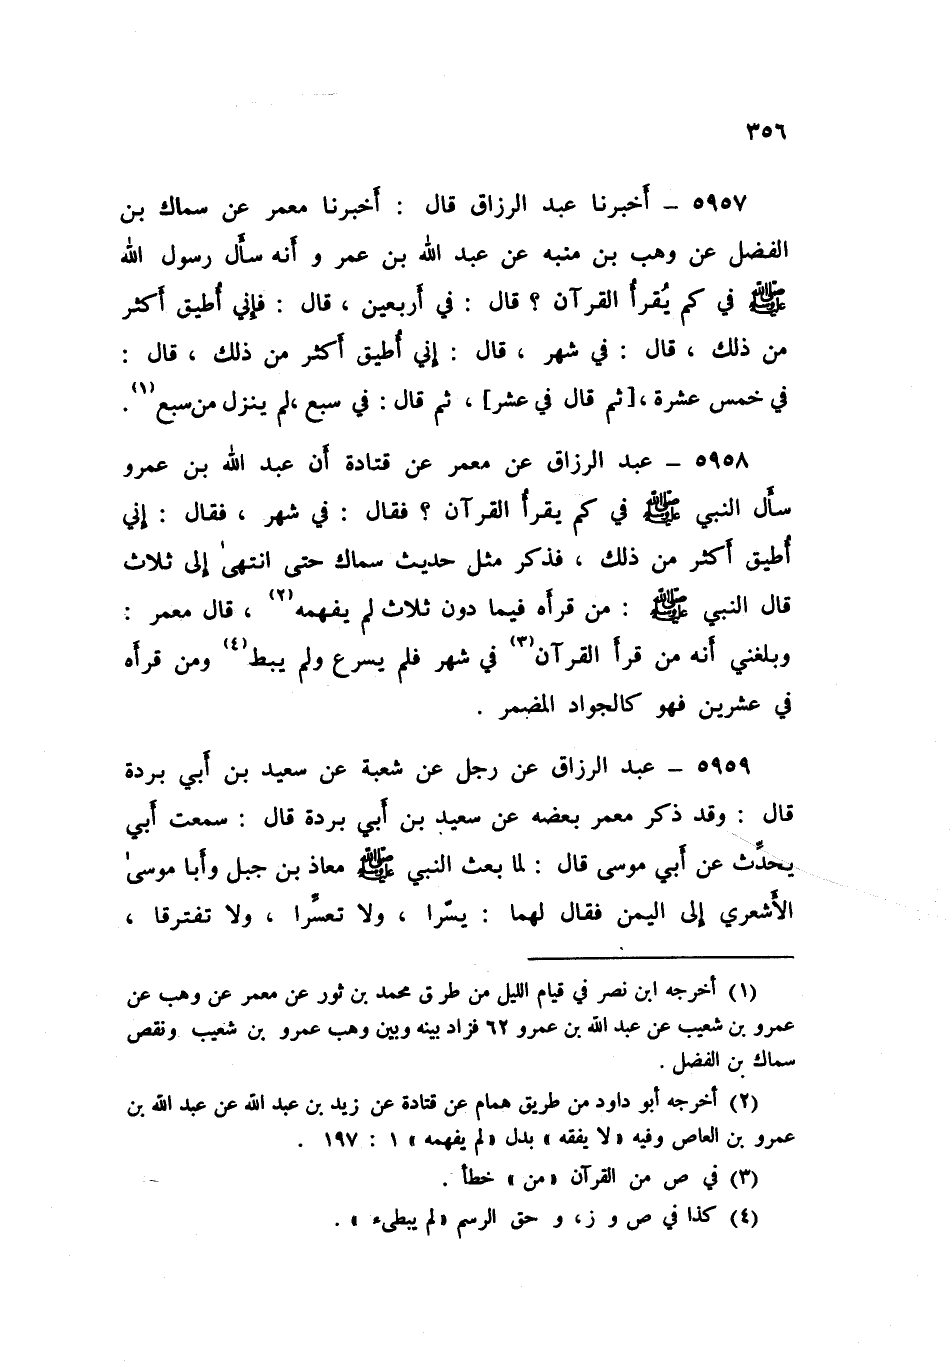 ٣٥٦
٥٩٥٧ ـ أخبرنا عبد الرزاق قال : أخبرنا معمر عن سماك بن
الفضل عن وهب بن منبه عن عبد الله بن عمر و أنه سأل رسول الله
ﷺ في كم يُقرأُ القرآن ؟ قال : في أربعين ، قال : فإني أُطيق أكثر
من ذلك ، قال : في شهر ، قال : إني أُطيق أكثر من ذلك ، قال :
في خمس عشرة ،[ثم قال في عشر] ، ثم قال : في سبع ،لم ينزل من سبع (١) .
٥٩٥٨ ـ عبد الرزاق عن معمر عن قتادة أن عبد الله بن عمرو
سأل النبي ﷺ في كم يقرأُ القرآن ؟ فقال : في شهر ، فقال : إني
أُطيق أكثر من ذلك ، فذكر مثل حديث سماك حتى انتهىٰ إلى ثلاث
قال النبي ﷺ : من قرأه فيما دون ثلاث لم يفهمه (٢) ، قال معمر :
وبلغني أنه من قرأ القرآن (٣) في شهر فلم يسرع ولم يبط (٤) ومن قرأه
في عشرين فهو كالجواد المضمر .
٥٩٥٩ ـ عبد الرزاق عن رجل عن شعبة عن سعيد بن أبي بردة
قال : وقد ذكر معمر بعضه عن سعيد بن أبي بردة قال : سمعت أبي
يحدِّث عن أبي موسى قال : لما بعث النبي ﷺ معاذ بن جبل وأبا موسىٰ
الأشعري إلى اليمن فقال لهما : يسّرا ، ولا تعسِّرا ، ولا تفترقا ،
(١) أخرجه ابن نصر في قيام الليل من طر ق محمد بن ثور عن معمر عن وهب عن
عمرو بن شعيب عن عبد الله بن عمرو ٦٢ فزاد بينه وبين وهب عمرو بن شعيب ونقص
سماك بن الفضل .
(٢) أخرجه أبو داود من طريق همام عن قتادة عن زيد بن عبد الله عن عبد الله بن
عمرو بن العاص وفيه « لا يفقه » بدل « لم يفهمه » ١ : ١٩٧ .
(٣) في ص من القرآن « من » خطأ .
(٤) كذا في ص و ز ، و حق الرسم « لم يبطىء » .